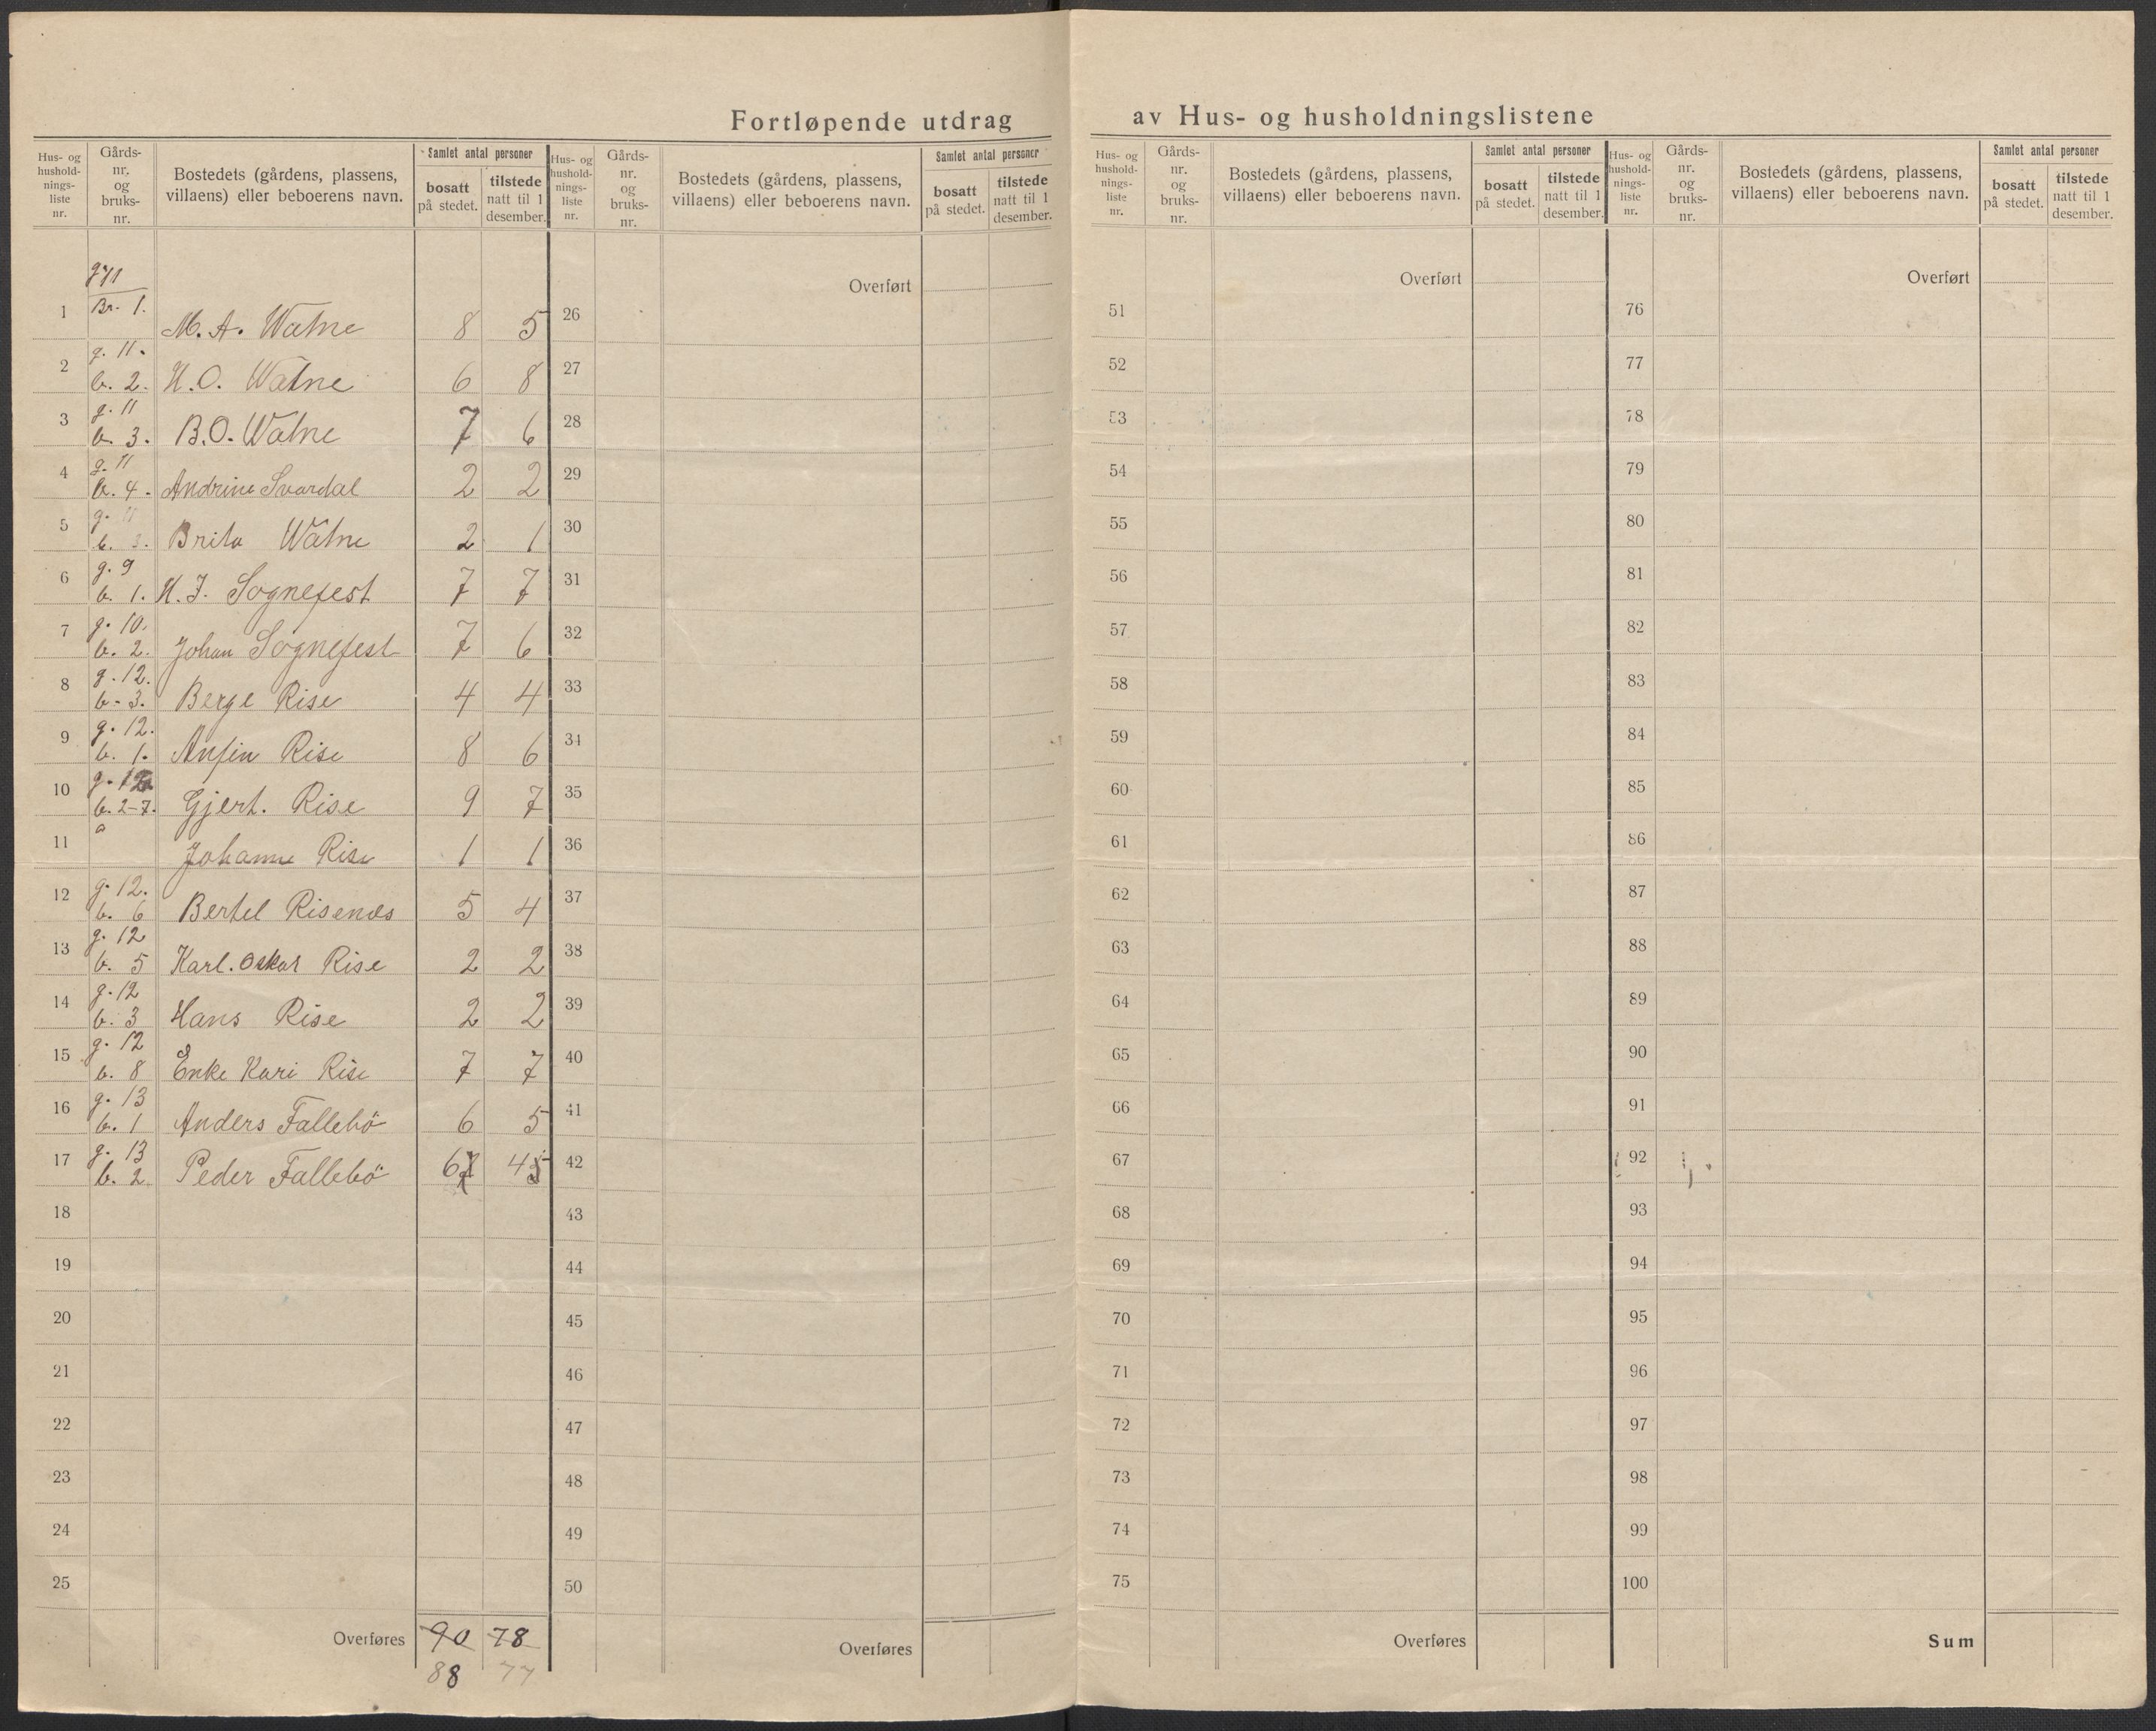 Fortløpende utdrag av Hus- og husholdningslistene
Hus- og hushold-nings-liste nr. Gårds-nr. og bruks-nr. Bostedets (gårdens, plassens, villaens) eller beboerens navn. Samlet antal personer bosatt på stedet. tilstede natt til 1 desember.
Hus- og hushold-nings-liste nr. Gårds-nr. og bruks-nr. Bostedets (gårdens, plassens, villaens) eller beboerens navn. Samlet antal personer bosatt på stedet. tilstede natt til 1 desember.
Hus- og hushold-nings-liste nr. Gårds-nr. og bruks-nr. Bostedets (gårdens, plassens, villaens) eller beboerens navn. Samlet antal personer bosatt på stedet. tilstede natt til 1 desember.
Hus- og hushold-nings-liste nr. Gårds-nr. og bruks-nr. Bostedets (gårdens, plassens, villaens) eller beboerens navn. Samlet antal personer bosatt på stedet. tilstede natt til 1 desember.
1 Br. 1. M. A. Watne 8 5
2 g. 11. b. 2. H. O. Watne 6 8
3 g. 11 b. 3. B. O. Watne 7 6
4 g. 11 b. 4. Andrine Svardal 2 2
5 g. 11 b. Brita Watne 2 1
6 g. 9 b. 1. H. J. Sognefest 7 7
7 g. 10. b. 2. Johan Sognefest 7 6
8 g. 12. b. 3. Berge Rise 4 4
9 g. 12. b. 1. Anfin Rise 8 6
10 g. 12 b. 2-7. Gjert. Rise 9 7
11 Johanne Rise 1 1
12 g. 12. b. 6 Bertel Risenes 5 4
13 g. 12 b. 5 Karl. Oskar Rise 2 2
14 g. 12 b. 3 Hans Rise 2 2
15 g. 12 b. 8 Enke Kari Rise 7 7
16 g. 13 b. 1 Anders Fallebö 6 5
17 g. 13 b. 2 Peder Fallebö 6 4
18
19
20
21
22
23
24
25
Overføres 90 78
88 77
Overført
26
27
28
29
30
31
32
33
34
35
36
37
38
39
40
41
42
43
44
45
46
47
48
49
50
Overføres
Overført
51
52
53
54
55
56
57
58
59
60
61
62
63
64
65
66
67
68
69
70
71
72
73
74
75
Overføres
Overført
76
77
78
79
80
81
82
83
84
85
86
87
88
89
90
91
92
93
94
95
96
97
98
99
100
Sum